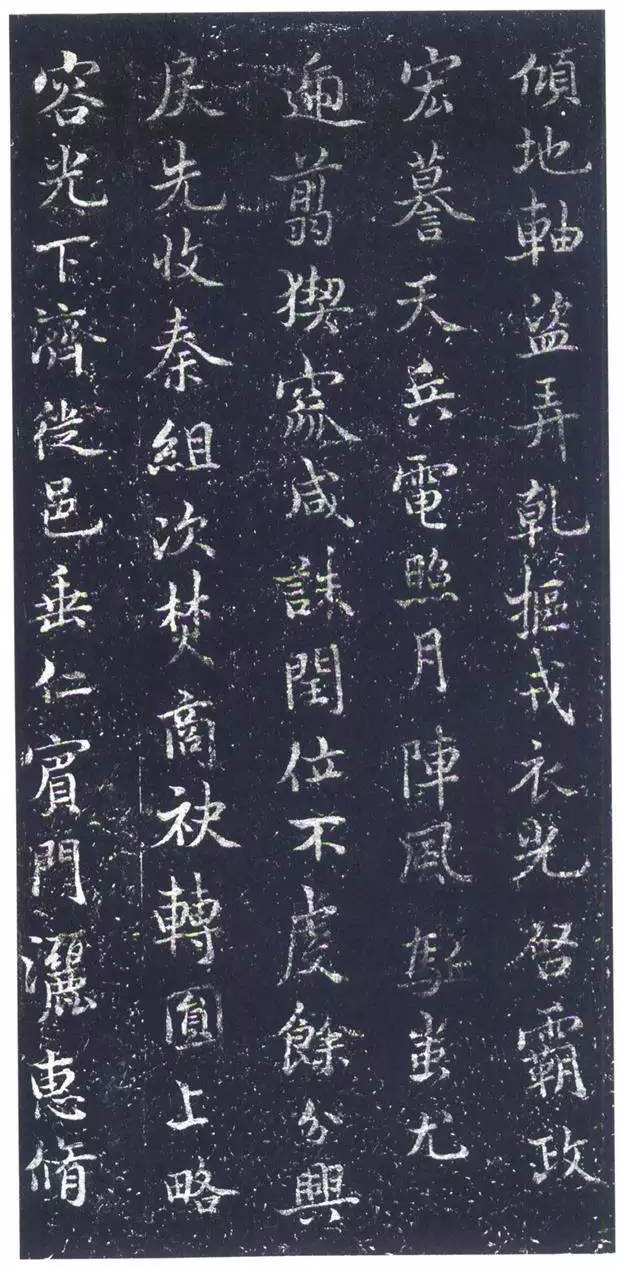 傾地軸盜弄乾樞戎衣光啓霸政
宏謩天兵電照月陣風驅蚩尤
遄翦猰窳咸誅閏位不虔餘分興
戾先收秦組次焚商袂轉圓上略
容光下濟徙邑垂仁賓門灑惠脩